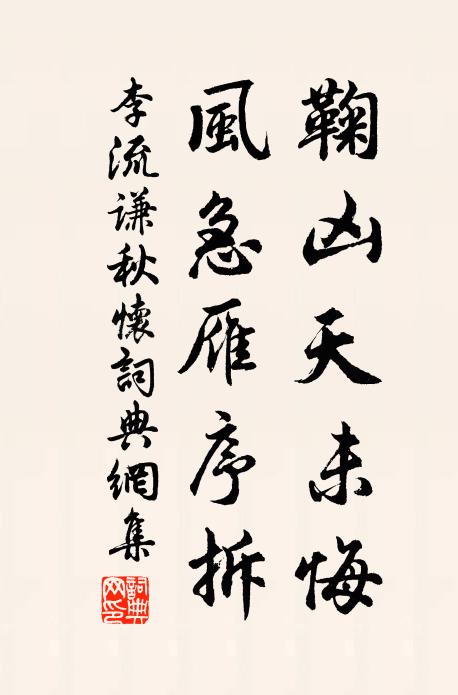 鞠凶天未悔
風急雁序拆
李流謙秋懷詞典網集
詞典網印